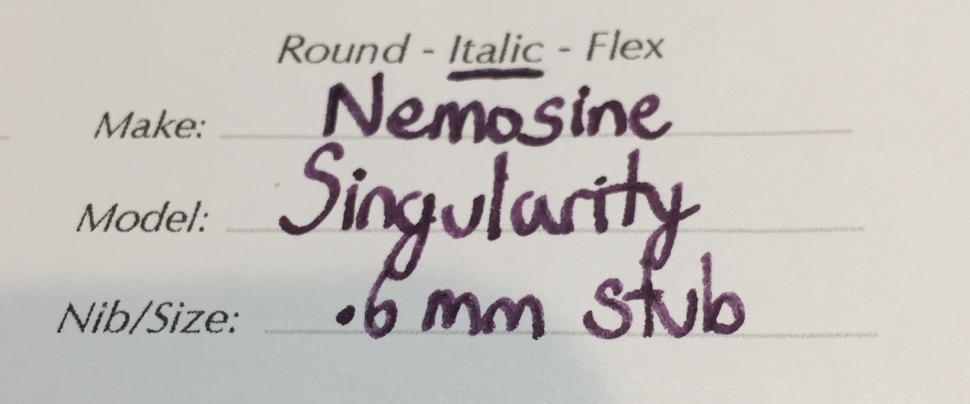 Round - Italic - Flex
Make: Nemosine
Model: Singularity
Nib/Size: .6 mm stub